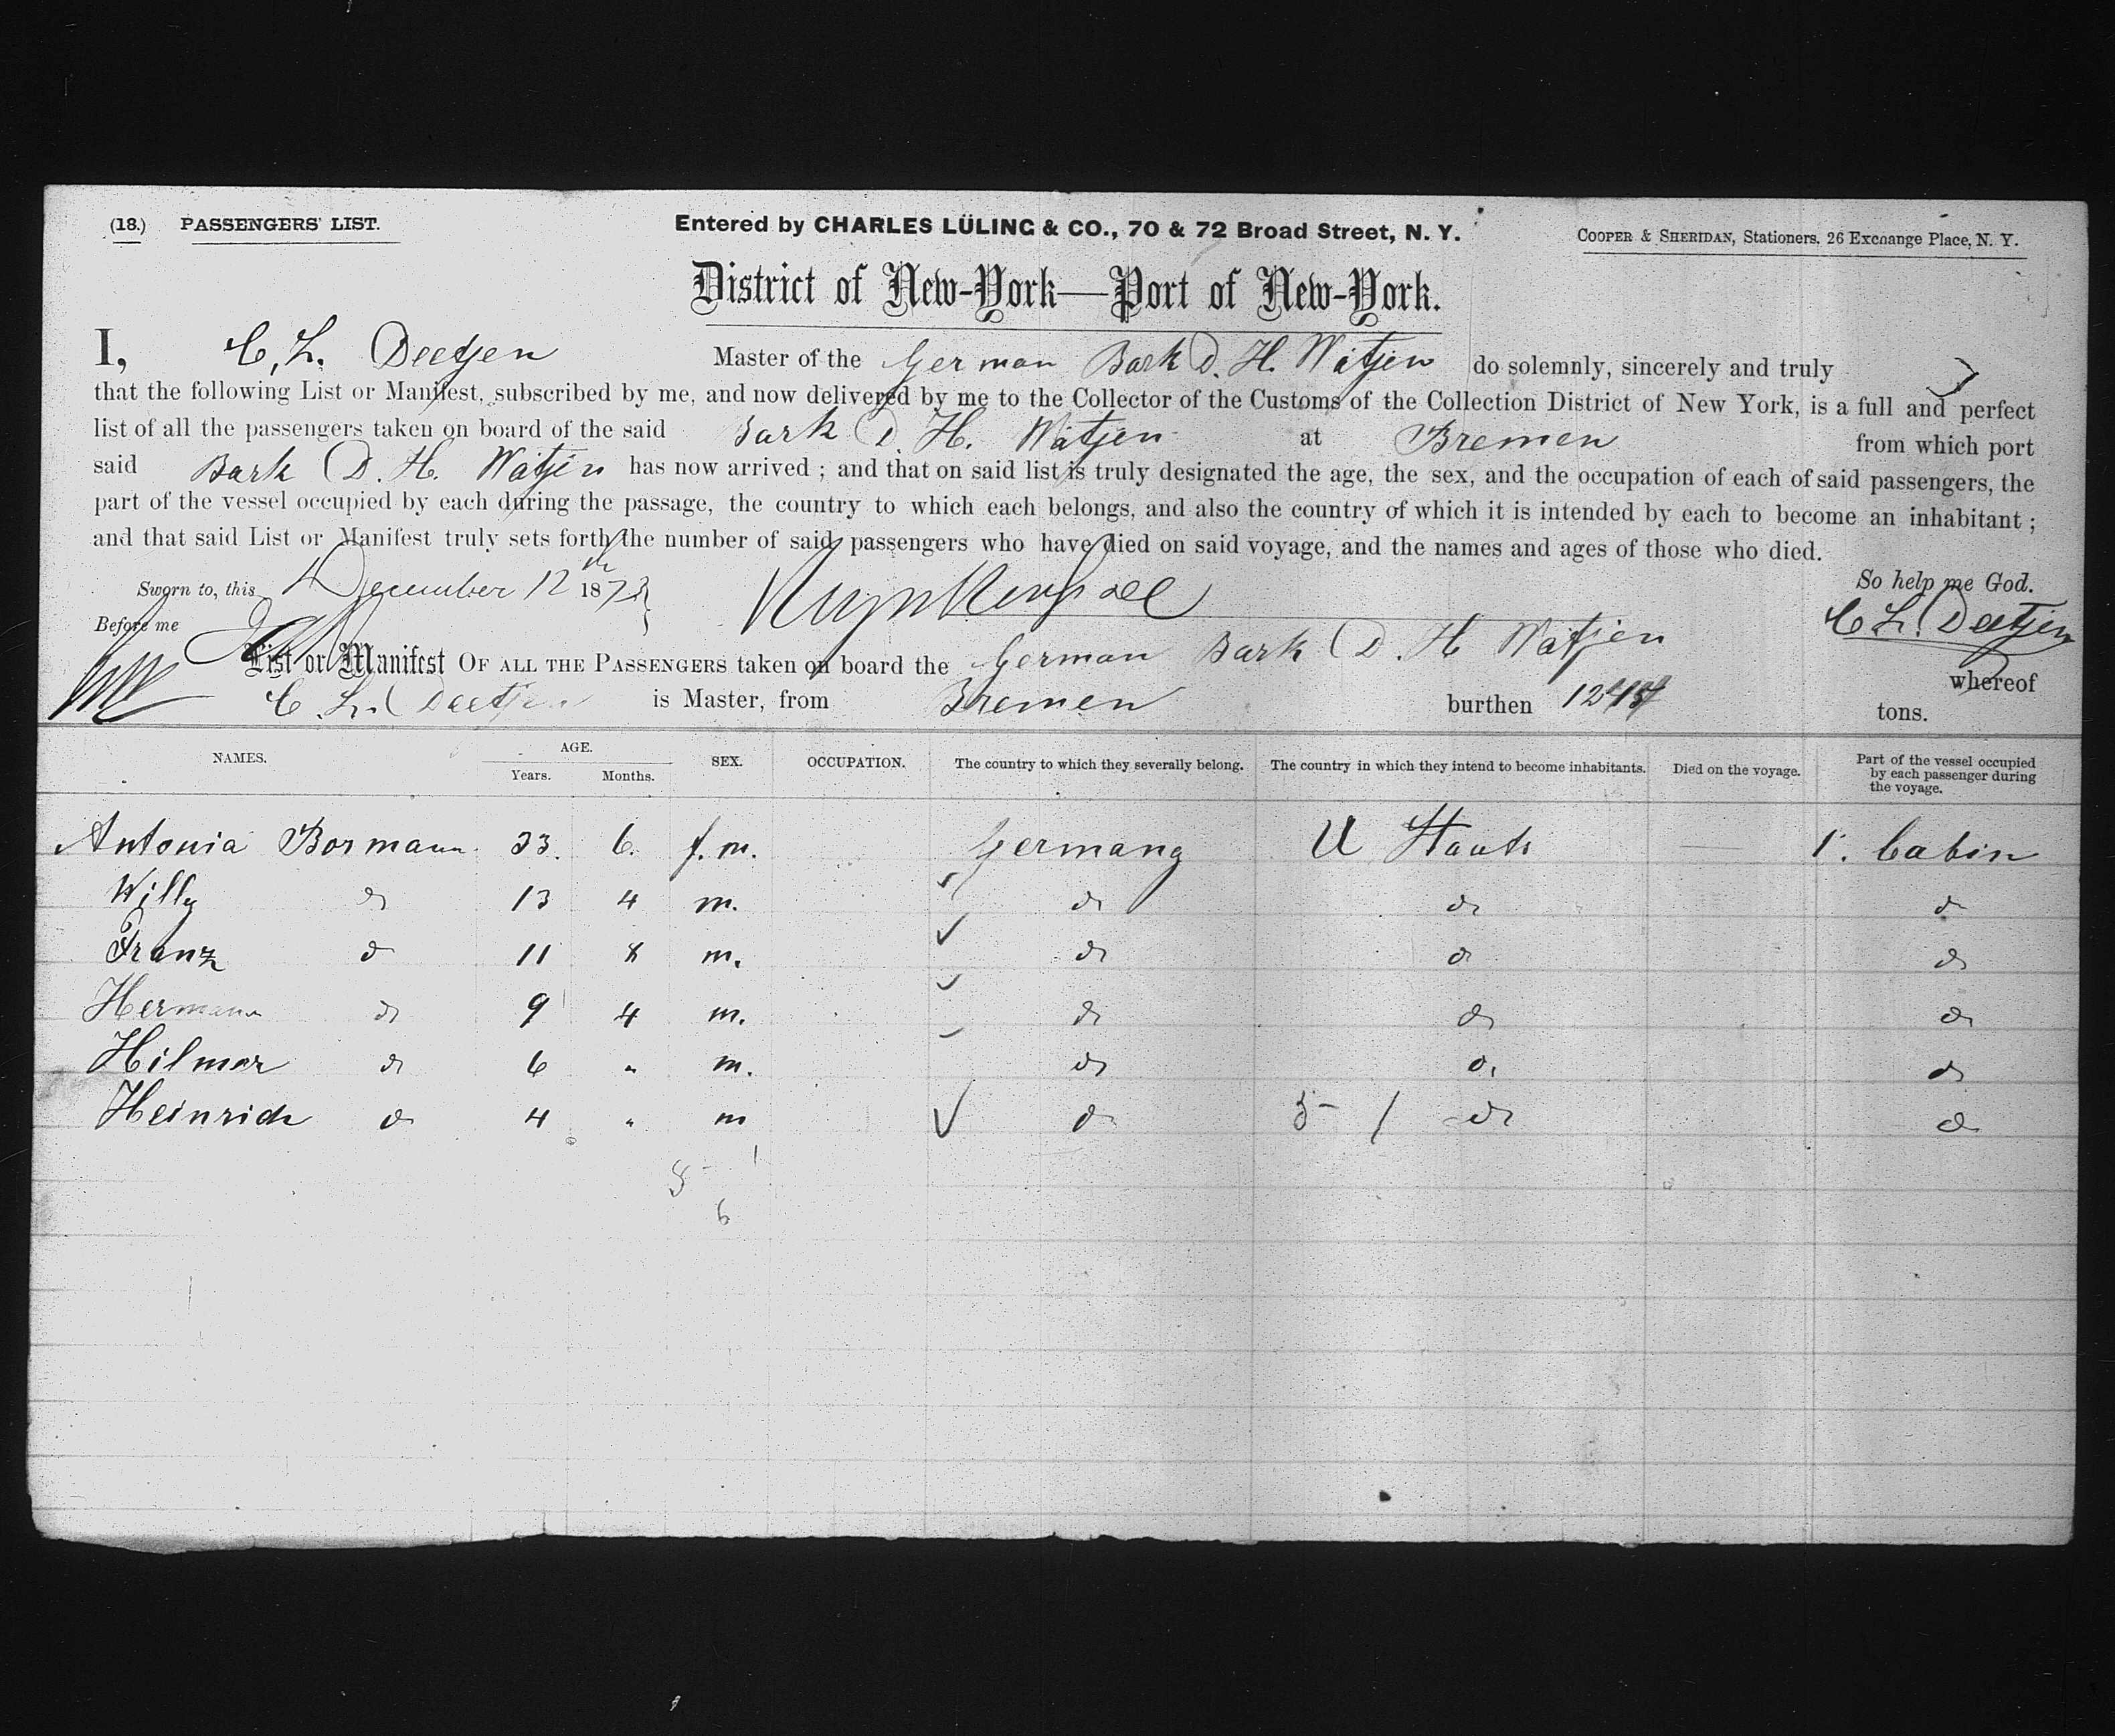 (18.) PASSENGERS' LIST. Entered by CHARLES LÜLING & CO., 70 & 72 Broad Street, N. Y. COOPER & SHERIDAN, Stationers, 26 Exchange Place, N. Y.
District of New-York—Port of New-York.
I, C, L. Deetjen Master of the German Bark D. H. Wätjen do solemnly, sincerely and truly
that the following List or Manifest, subscribed by me, and now delivered by me to the Collector of the Customs of the Collection District of New York, is a full and perfect
list of all the passengers taken on board of the said Bark D. H. Wätjen at Bremen from which port
said Bark D. H. Wätjen has now arrived ; and that on said list is truly designated the age, the sex, and the occupation of each of said passengers, the
part of the vessel occupied by each during the passage, the country to which each belongs, and also the country of which it is intended by each to become an inhabitant ;
and that said List or Manifest truly sets forth the number of said passengers who have died on said voyage, and the names and ages of those who died.
Sworn to, this December 12th 187 So help me God.
Before me C L. Deetjen
List or Manifest OF ALL THE PASSENGERS taken on board the German Bark D. H Wätjen whereof
C. L. Deetjen is Master, from Bremen burthen tons.
NAMES. AGE. Years. Months. SEX. OCCUPATION. The country to which they severally belong. The country in which they intend to become inhabitants. Died on the voyage. Part of the vessel occupied by each passenger during the voyage.
Antonia Bormann 33. 6. f. m. Germany U Staats 1. Cabin
Willy do 13 4 m. do do do
Franz do 11 8 m. do do do
Hermann do 9 4 m. do do do
Hilmar do 6 " m. do do do
Heinrich do 4 " m do 5 - / do do
5 - 1
6